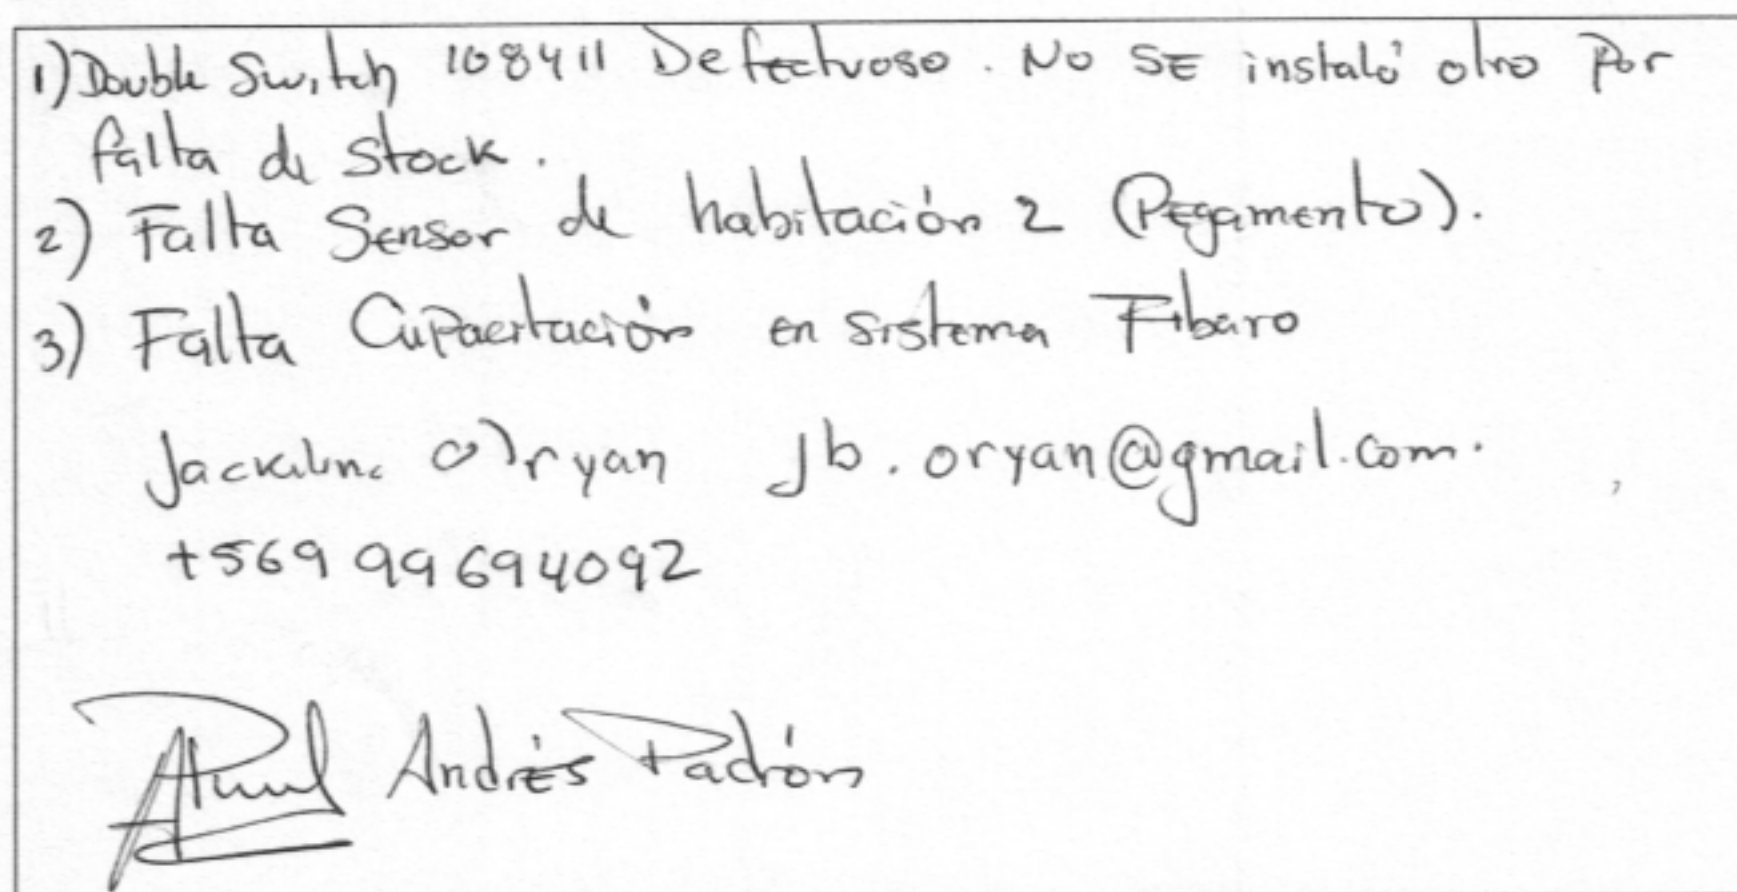 1) Double Switch 108411 Defectuoso. No SE instaló otro Por
falta de Stock.
2) Falta Sensor de habitación 2 (Pegamento).
3) Falta Capacitación en sistema Fibaro
Jackeline O'ryan jb.oryan@gmail.com.
+569 99694092
Andrés Padrón